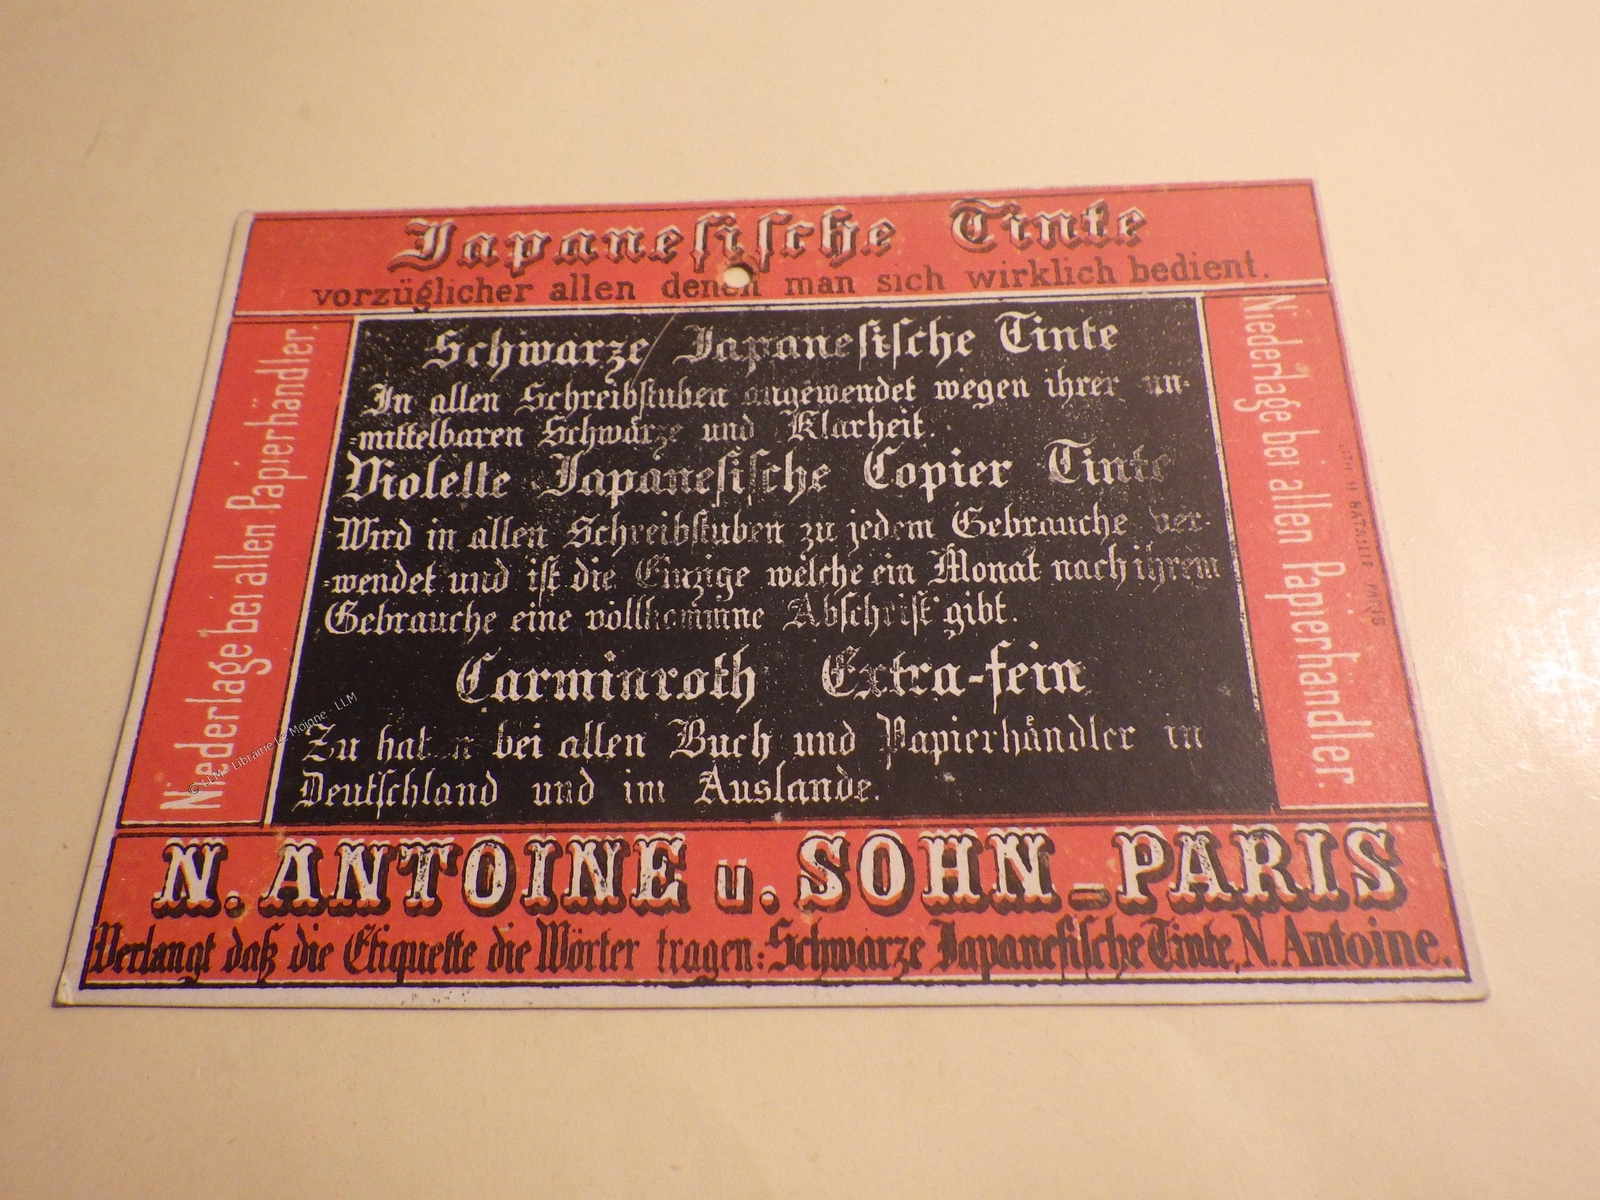 Japanesische Tinte
vorzüglicher allen denen man sich wirklich bedient.
Niederlage bei allen Papierhändler.
Schwarze Japanesische Tinte
In allen Schreibstuben angewendet wegen ihrer un-
-mittelbaren Schwärze und Klarheit
Violette Japanesische Copier Tinte
Wird in allen Schreibstuben zu jedem Gebrauche ver-
-wendet und ist die Einzige welche ein Monat nach ihrem
Gebrauche eine vollkommne Abschrift gibt.
Carminroth Extra-fein
Zu haben bei allen Buch und Papierhändler in
Deutschland und im Auslande.
Niederlage bei allen Papierhändler.
LITH H BATAILLE PARIS
N. ANTOINE u. SOHN - PARIS
Verlangt daß die Etiquette die Wörter tragen: Schwarze Japanesische Tinte, N. Antoine.
© LLM - Librairie Le Moigne - LLM